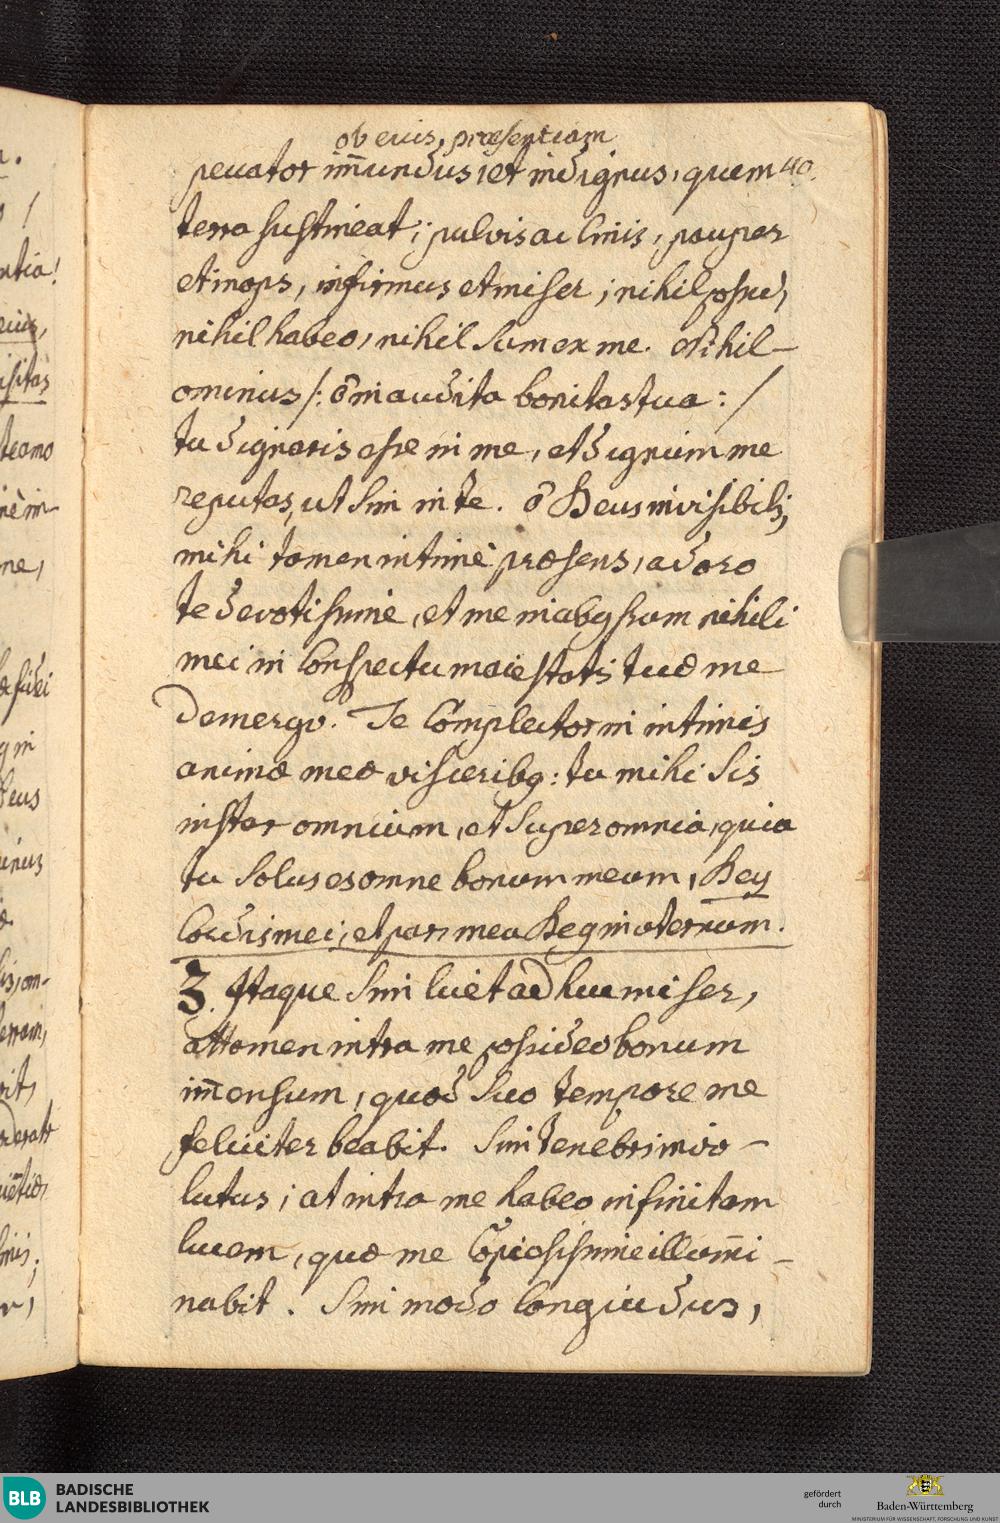 ob eius, præsentiam
peccator im̄undus, et indignus, quem 40.
terra sustineat; pulvis ac cinis, pauper
et inops, infirmus et miser; nihil possu,
nihil habeo, nihil sum ex me. Nihil-
ominus /: ô inaudita bonitas tua: /
tu dignaris esse in me, et dignum me
reputas, ut sim in te. ô Deus invisibilis,
mihi tamen intimè præsens, adoro
te devotissimè, et me in abyssum nihili
mei in conspectu maiestatis tuæ me
demergo. Te complector in intimis
animæ meæ visceribq: tu mihi sis
instar omnium, et super omnia, quia
tu solus es omne bonum meum, Deq
Cordis mei, et pars mea Deq in æternum.
3. Itaque sim licèt adhuc miser,
attamen intra me possideo bonum
im̄ensum, quod suo tempore me
feliciter beabit. Sim tenebris invo-
lutus; at intra me habeo infinitam
lucem, quæ me copiosissime illum̄i-
nabit. Sim modo longividus,
BLB
BADISCHE
LANDESBIBLIOTHEK
gefördert
durch
Baden-Württemberg
MINISTERIUM FÜR WISSENSCHAFT, FORSCHUNG UND KUNST